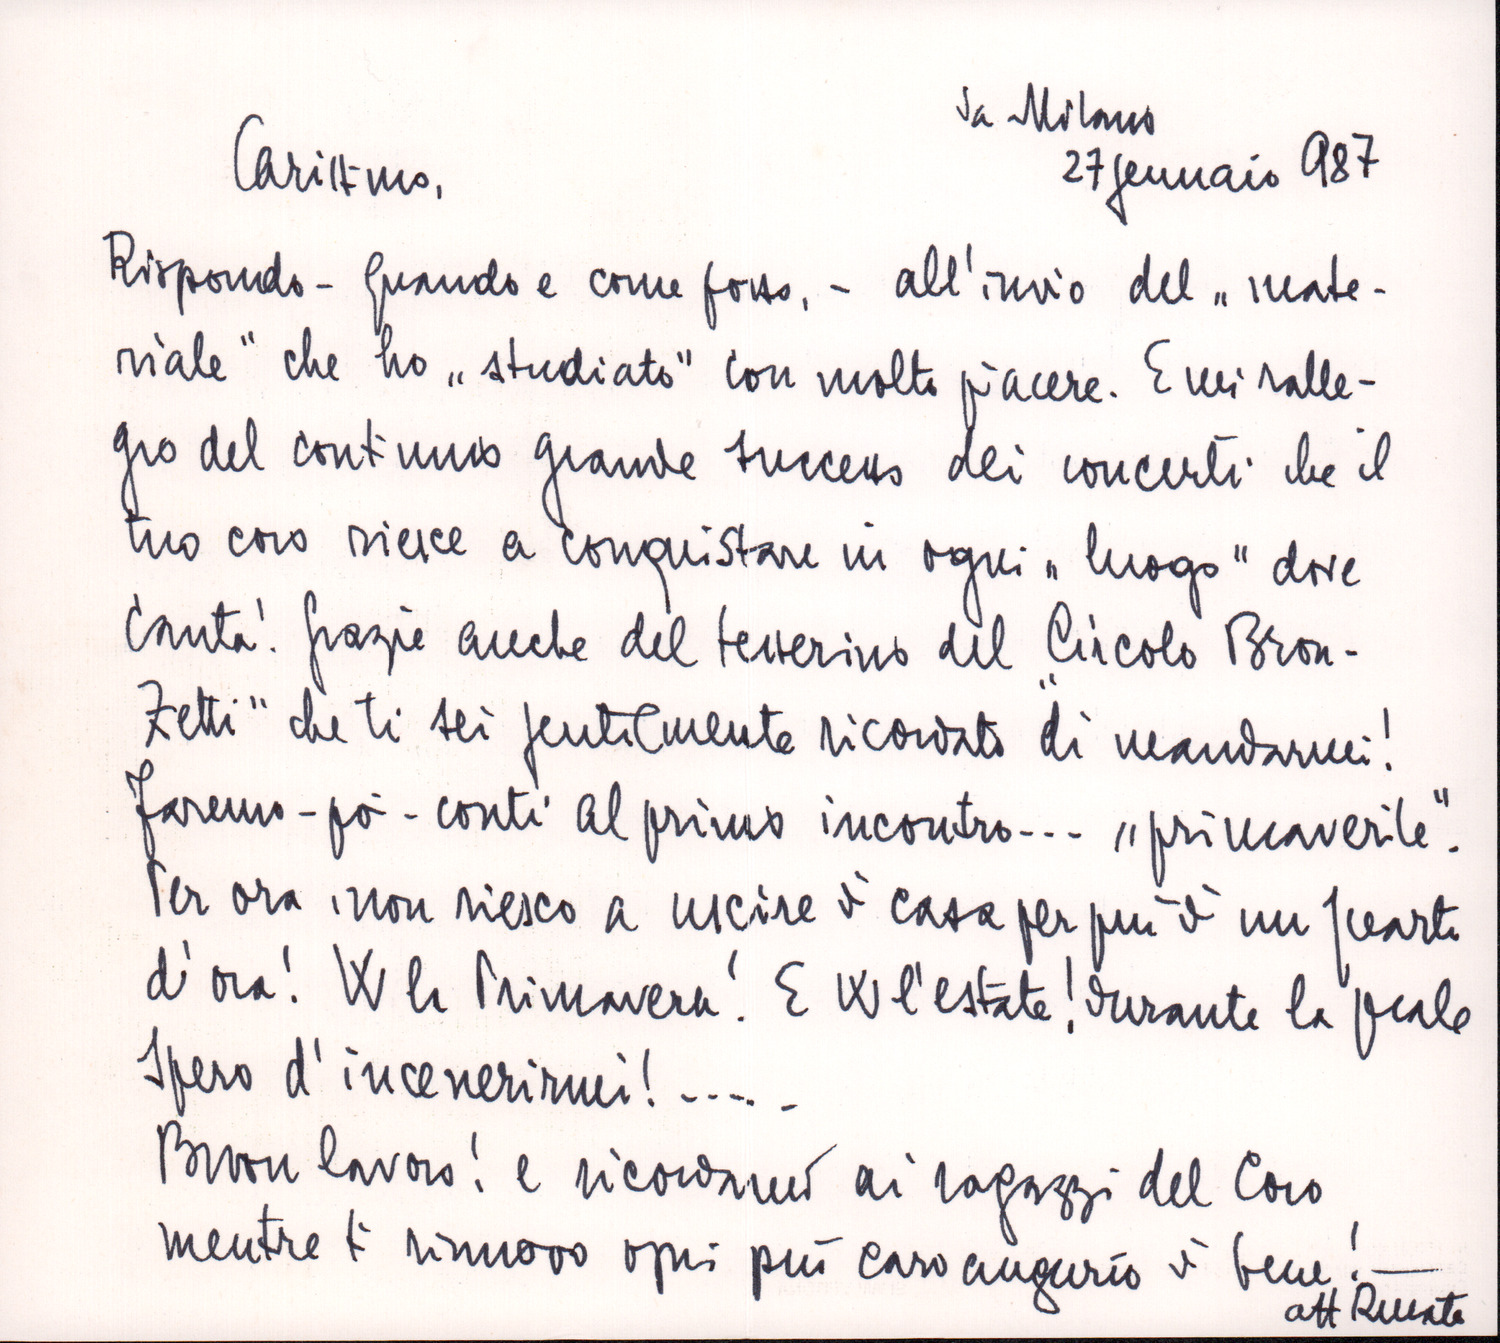 da Milano
27 gennaio 987
Carissimo,
Rispondo - quando e come posso, - all'invio del „mate-
riale" che ho „studiato" con molto piacere. E mi ralle-
gro del continuo grande successo dei concerti che il
tuo coro riesce a conquistare in ogni „luogo" dove
canta! Grazie anche del tesserino del „Circolo Bron-
zetti" che ti sei gentilmente ricordato di mandarmi!
Faremo - poi - conti al primo incontro--- „primaverile".
Per ora non riesco a uscire di casa per più di un quarto
d'ora! W la Primavera! E W l'estate! durante la quale
spero d'incenerirmi! -----
Buon lavoro! e ricordami ai ragazzi del Coro
mentre ti rinnovo ogni più caro augurio di bene! —
aff Renato